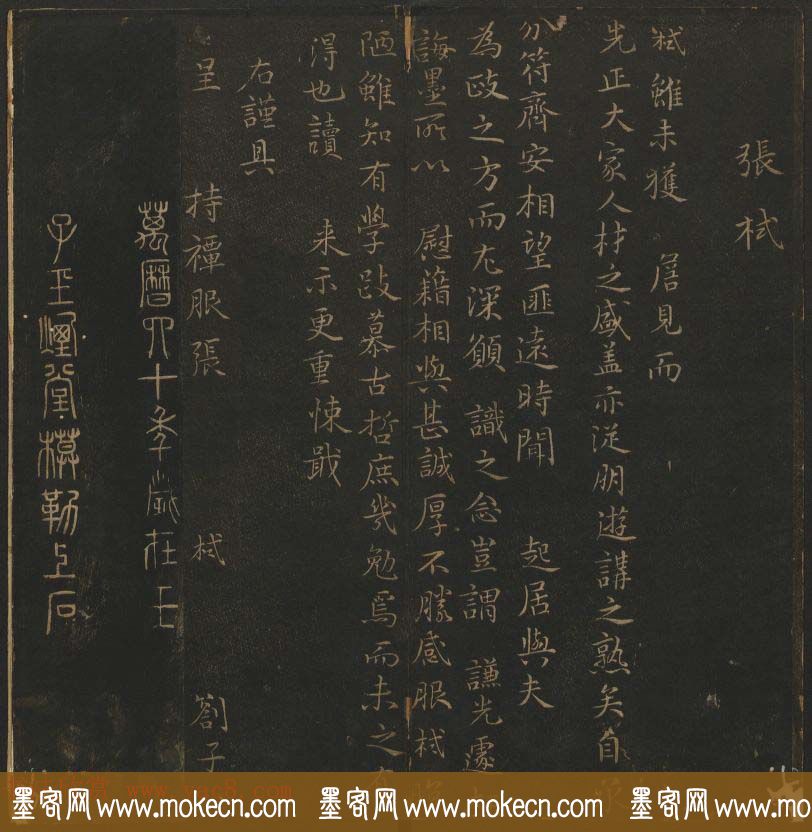 張栻
栻雖未獲 㞐見而
先正大家人材之盛盖亦従朋遊講之熟矣自
分符齊安相望匪遠時聞 起居與夫
為政之方而尤深願 識之念豈謂 謙光遽
誨墨所以 慰藉相與甚誠厚不勝感服栻
陋雖知有學跂慕古哲庶幾勉焉而未之有
得也讀 来示更重悚戢
右謹具
呈 持禫服張 栻 劄子
萬曆四十年歲在壬
子玉煙堂摹勒上石
墨客网 www.mokecn.com 墨客网 www.mokecn.com 墨客网 www.mokecn.com